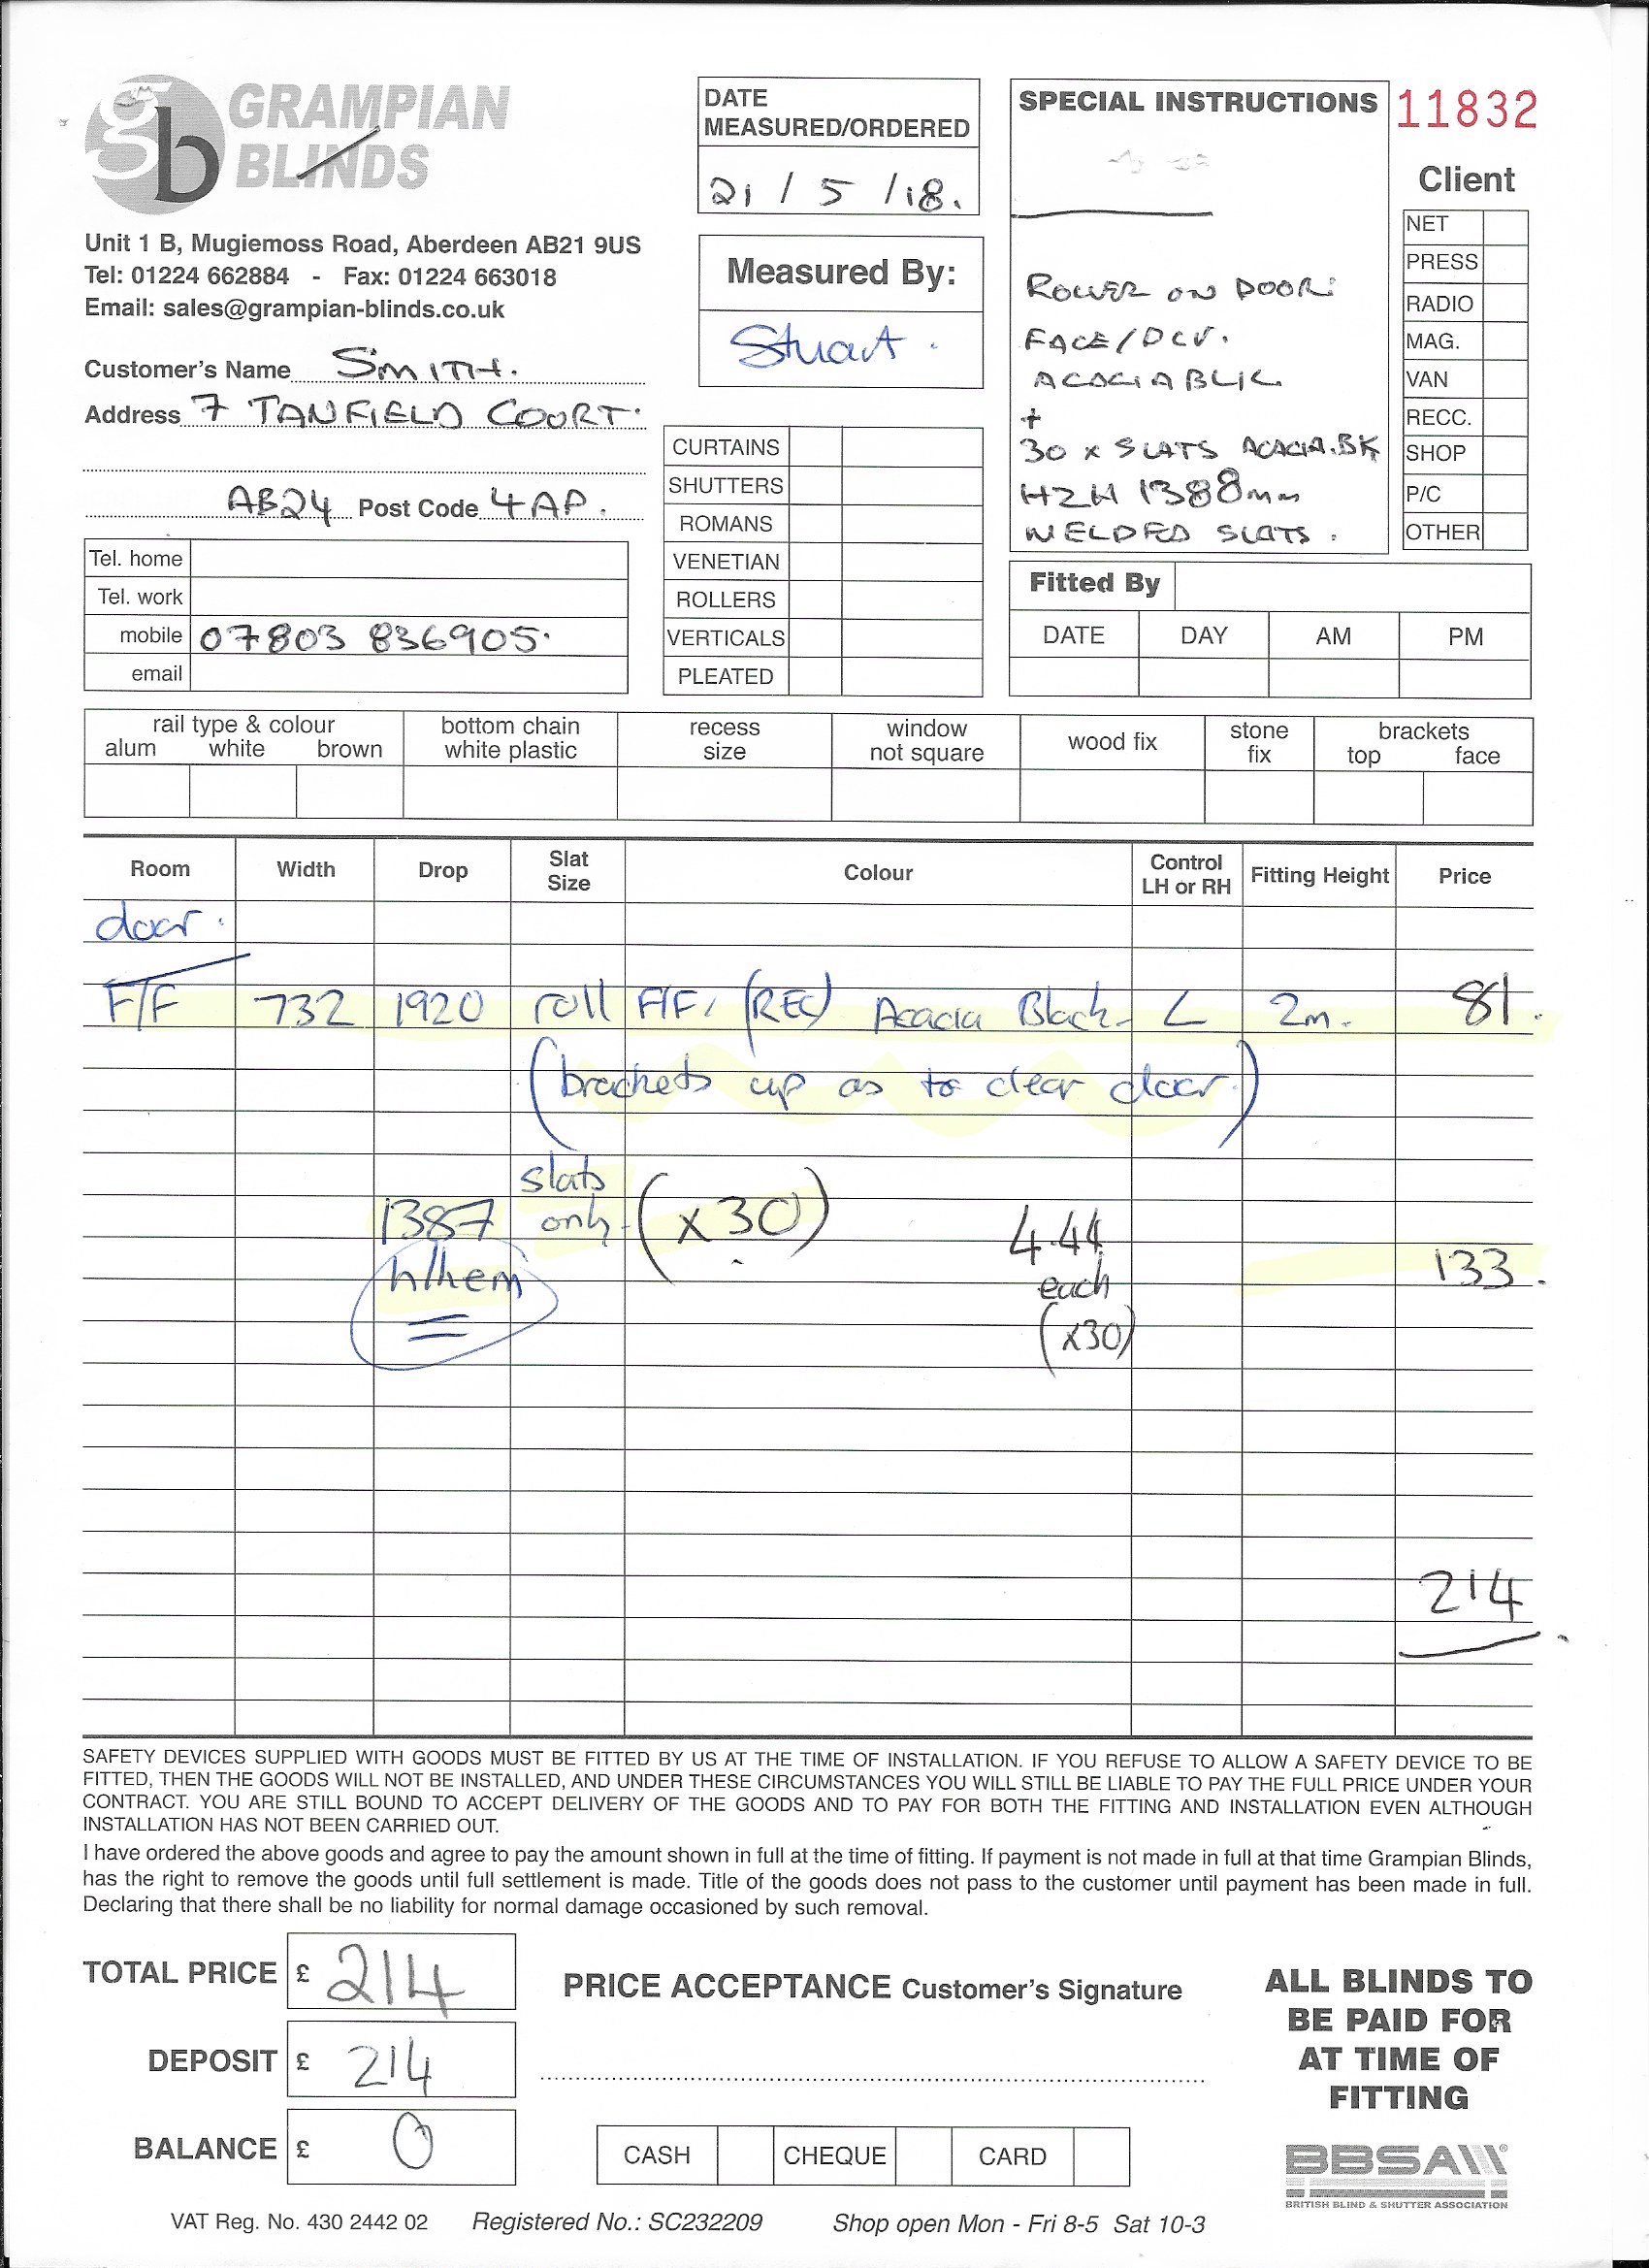 gb GRAMPIAN
BLINDS
Unit 1 B, Mugiemoss Road, Aberdeen AB21 9US
Tel: 01224 662884 - Fax: 01224 663018
Email: sales@grampian-blinds.co.uk
Customer's Name SMITH.
Address 7 TANFIELD COURT.
AB24 Post Code 4AP.
Tel. home
Tel. work
mobile 07803 836905.
email
DATE
MEASURED/ORDERED
21 / 5 / 18.
Measured By:
Stuart.
CURTAINS
SHUTTERS
ROMANS
VENETIAN
ROLLERS
VERTICALS
PLEATED
SPECIAL INSTRUCTIONS
ROLLER ON DOOR:
FACE/DCV.
ACACIA BLK
+
30 x SLATS ACACIA.BK
H2H 1388mm
WELDED SLATS.
11832
Client
NET
PRESS
RADIO
MAG.
VAN
RECC.
SHOP
P/C
OTHER
Fitted By
DATE DAY AM PM
rail type & colour bottom chain recess window wood fix stone brackets
alum white brown white plastic size not square fix top face
Room Width Drop Slat Size Colour Control LH or RH Fitting Height Price
door.
F/F 732 1920 roll F/F, (REC) Acacia Black L 2m. 81.
(brackets up as to clear door.)
1387 slats only (x30) 4.44
h/hem each 133.
(x30)
214
SAFETY DEVICES SUPPLIED WITH GOODS MUST BE FITTED BY US AT THE TIME OF INSTALLATION. IF YOU REFUSE TO ALLOW A SAFETY DEVICE TO BE
FITTED, THEN THE GOODS WILL NOT BE INSTALLED, AND UNDER THESE CIRCUMSTANCES YOU WILL STILL BE LIABLE TO PAY THE FULL PRICE UNDER YOUR
CONTRACT. YOU ARE STILL BOUND TO ACCEPT DELIVERY OF THE GOODS AND TO PAY FOR BOTH THE FITTING AND INSTALLATION EVEN ALTHOUGH
INSTALLATION HAS NOT BEEN CARRIED OUT.
I have ordered the above goods and agree to pay the amount shown in full at the time of fitting. If payment is not made in full at that time Grampian Blinds,
has the right to remove the goods until full settlement is made. Title of the goods does not pass to the customer until payment has been made in full.
Declaring that there shall be no liability for normal damage occasioned by such removal.
TOTAL PRICE £ 214
DEPOSIT £ 214
BALANCE £ 0
PRICE ACCEPTANCE Customer's Signature
CASH CHEQUE CARD
ALL BLINDS TO
BE PAID FOR
AT TIME OF
FITTING
BBSA
BRITISH BLIND & SHUTTER ASSOCIATION
VAT Reg. No. 430 2442 02 Registered No.: SC232209 Shop open Mon - Fri 8-5 Sat 10-3